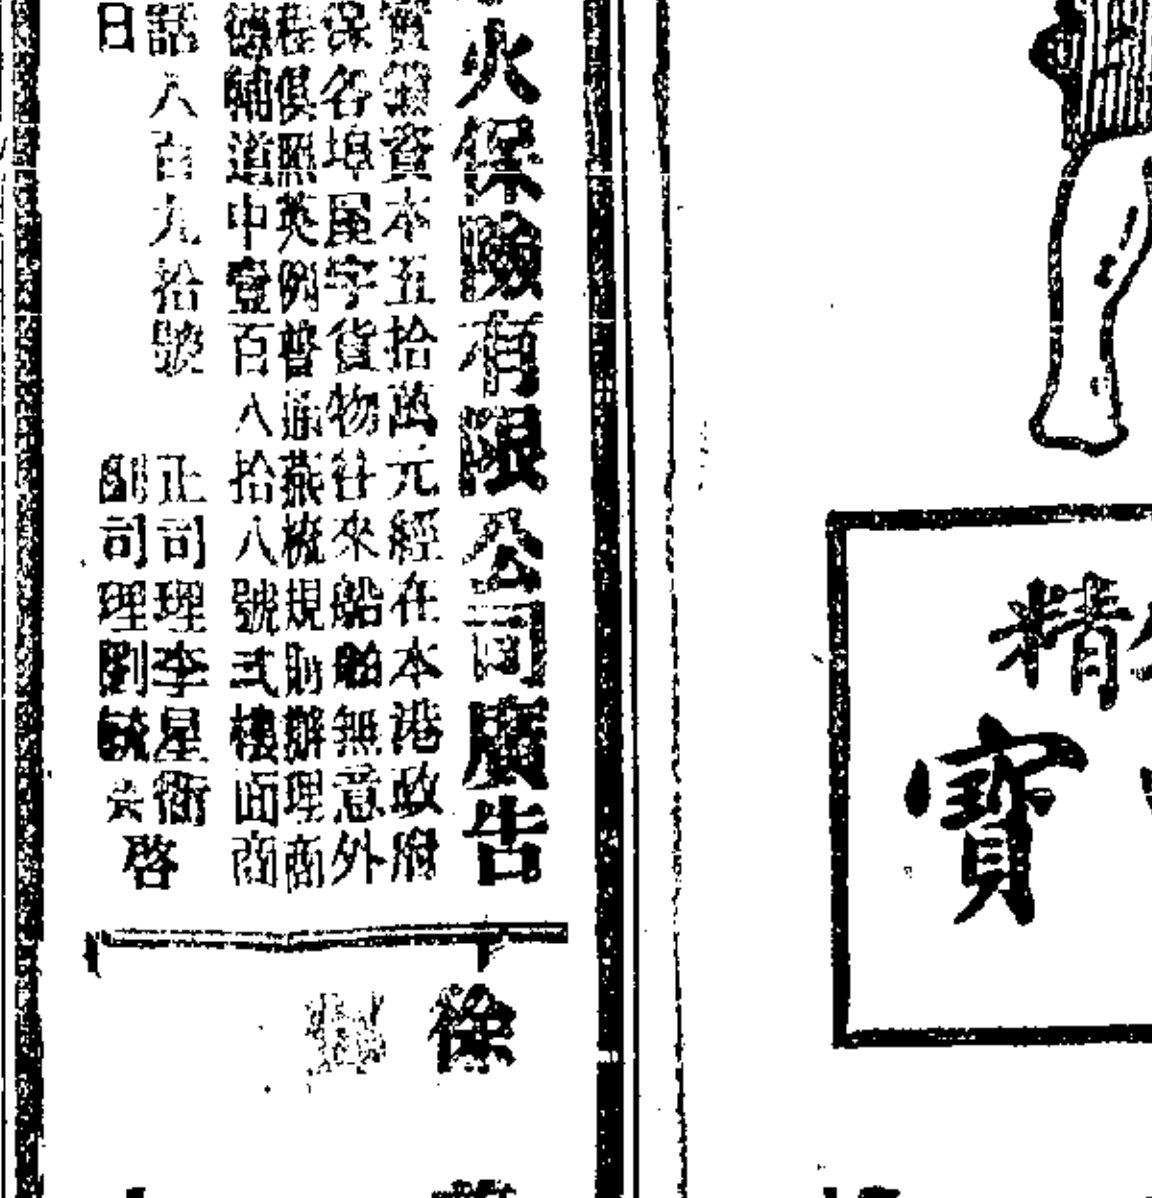 火保險有限公司廣告
資本五拾萬元經在本港政府
保各埠屋宇貨物往來船舶無意外
程俱照英例普通燕梳規則辦理商
德輔道中壹百八拾八號弍樓面商
話八百九拾號 正司理李星衢
日 副司理劉毓
啓
徐
精
寶